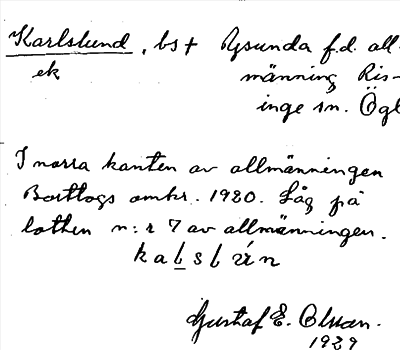 Karlslund, bs† Rysunda f.d. all-
ek männing Ris-
inge sn. Ögl
I norra kanten av allmänningen
Borttogs omkr. 1920. Låg på
lotten n:r 7 av allmänningen.
Gustaf E. Olsson.
1929